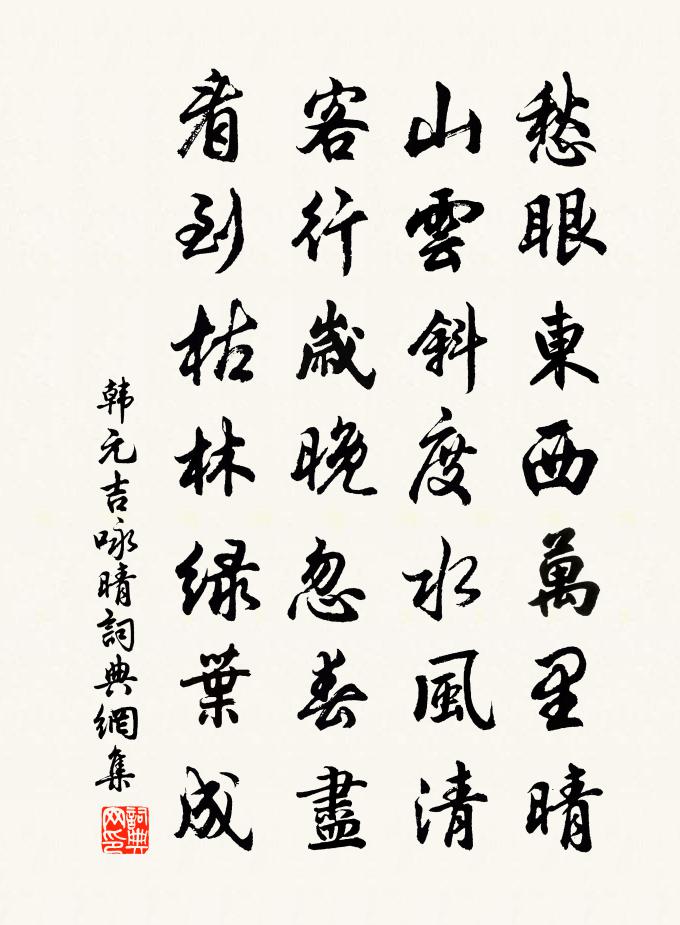 愁眼東西萬里晴
山雲斜度水風清
客行歲晚忽春盡
看到枯林綠葉成
韩元吉咏晴詞典網集
詞典网印